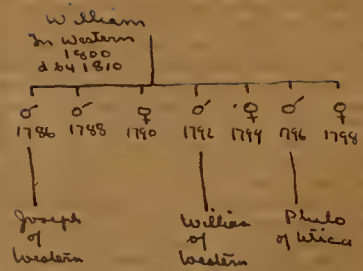 William
In Western
1800
d by 1810
♂ ♂ ♀ ♂ ♀ ♂ ♀
1786 1788 1790 1792 1794 1796 1798
Joseph
of
Western
William
of
Western
Philo
of Utica